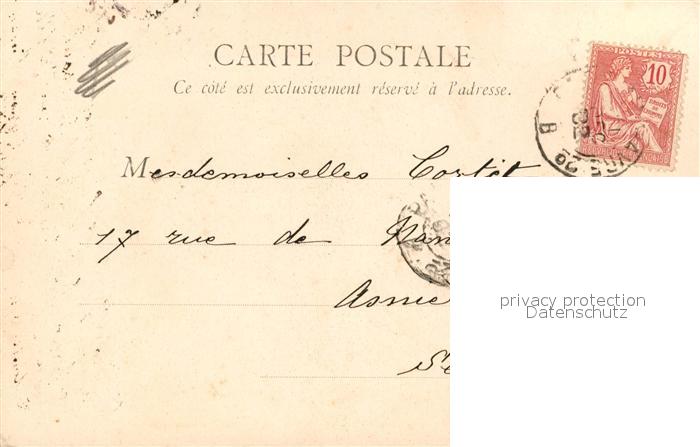 CARTE POSTALE
Ce côté est exclusivement réservé à l'adresse.
POSTES
10
DROITS DE L'HOMME
Mesdemoiselles Cortot
B
17 rue de Nan
Asnie
Se
privacy protection
Datenschutz